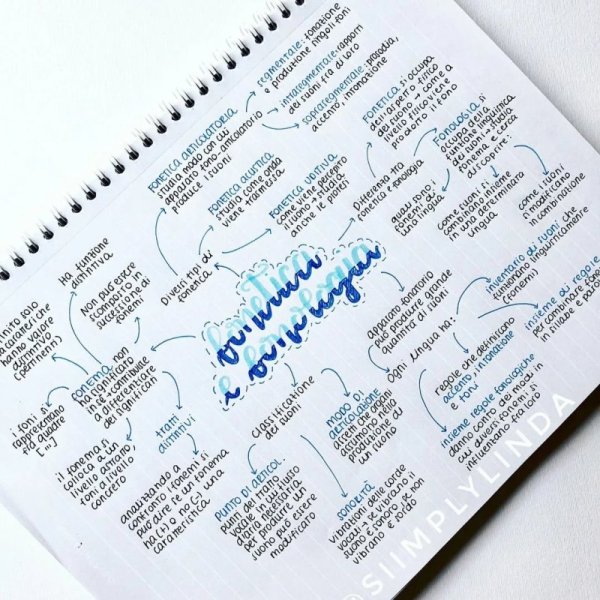 fonetica
e fonologia
Diversi tipi di
fonetica
FONETICA ARTICOLATORIA
studia modo con cui
apparato fono-articolatorio
produce i suoni
segmentale: fonazione
e produzione singoli foni
intrasegmentale: rapporti
dei suoni fra di loro
soprasegmentale: prosodia,
accento, intonazione
FONETICA ACUSTICA
studia come onda
viene trasmessa
FONETICA UDITIVA
come viene percepito
il suono → studia
anche le
Differenza tra
fonetica e fonologia
FONETICA si occupa
dell'aspetto fisico
dei suoni → come a
livello fisico viene
prodotto il fono
FONOLOGIA si
occupa della
funzione linguistica
dei suoni → studia
fonema e cerca
di scoprire:
quali sono i
fonemi di una
loro lingua
come i suoni si
combinano insieme
in una determinata
lingua
come i suoni
si modificano
in combinazione
apparato fonatorio
può produrre grande
quantità di suoni
Ogni lingua ha:
inventario di suoni che
funzionano linguisticamente
(fonemi)
insieme di regole
per combinare fonemi
in sillabe e parole
regole che definiscono
accento, intonazione
e toni
insieme regole fonologiche
danno conto dei modi in
cui diversi fonemi si
influenzano fra loro
Classificazione
dei suoni
MODO DI
ARTICOLAZIONE
assetti che organi
assumono nella
produzione di
un suono
PUNTO DI ARTICOL.
punto del tratto
vocale in cui flusso
d'aria necessaria
per produrre un
suono può essere
modificato
SONORITÀ
vibrazioni delle corde
vocali → se vibrano il
suono è sonoro se non
vibrano è sordo
FONEMA non
ha significato
in sé → contribuisce
a differenziare
dei significati
Ha funzione
distintiva
Non può essere
scomposto in
successione di
fonemi
solo
che
hanno valore
distintivo
(pertinenti)
i foni si
rappresentano
tra quadre
[...]
il fonema si
colloca a un
livello astratto,
foni a livello
concreto
tratti
distintivi
analizzando a
confronto i fonemi si
può dire se un fonema
ha (+) o no (-) una
caratteristica
@SIIMPLYLINDA